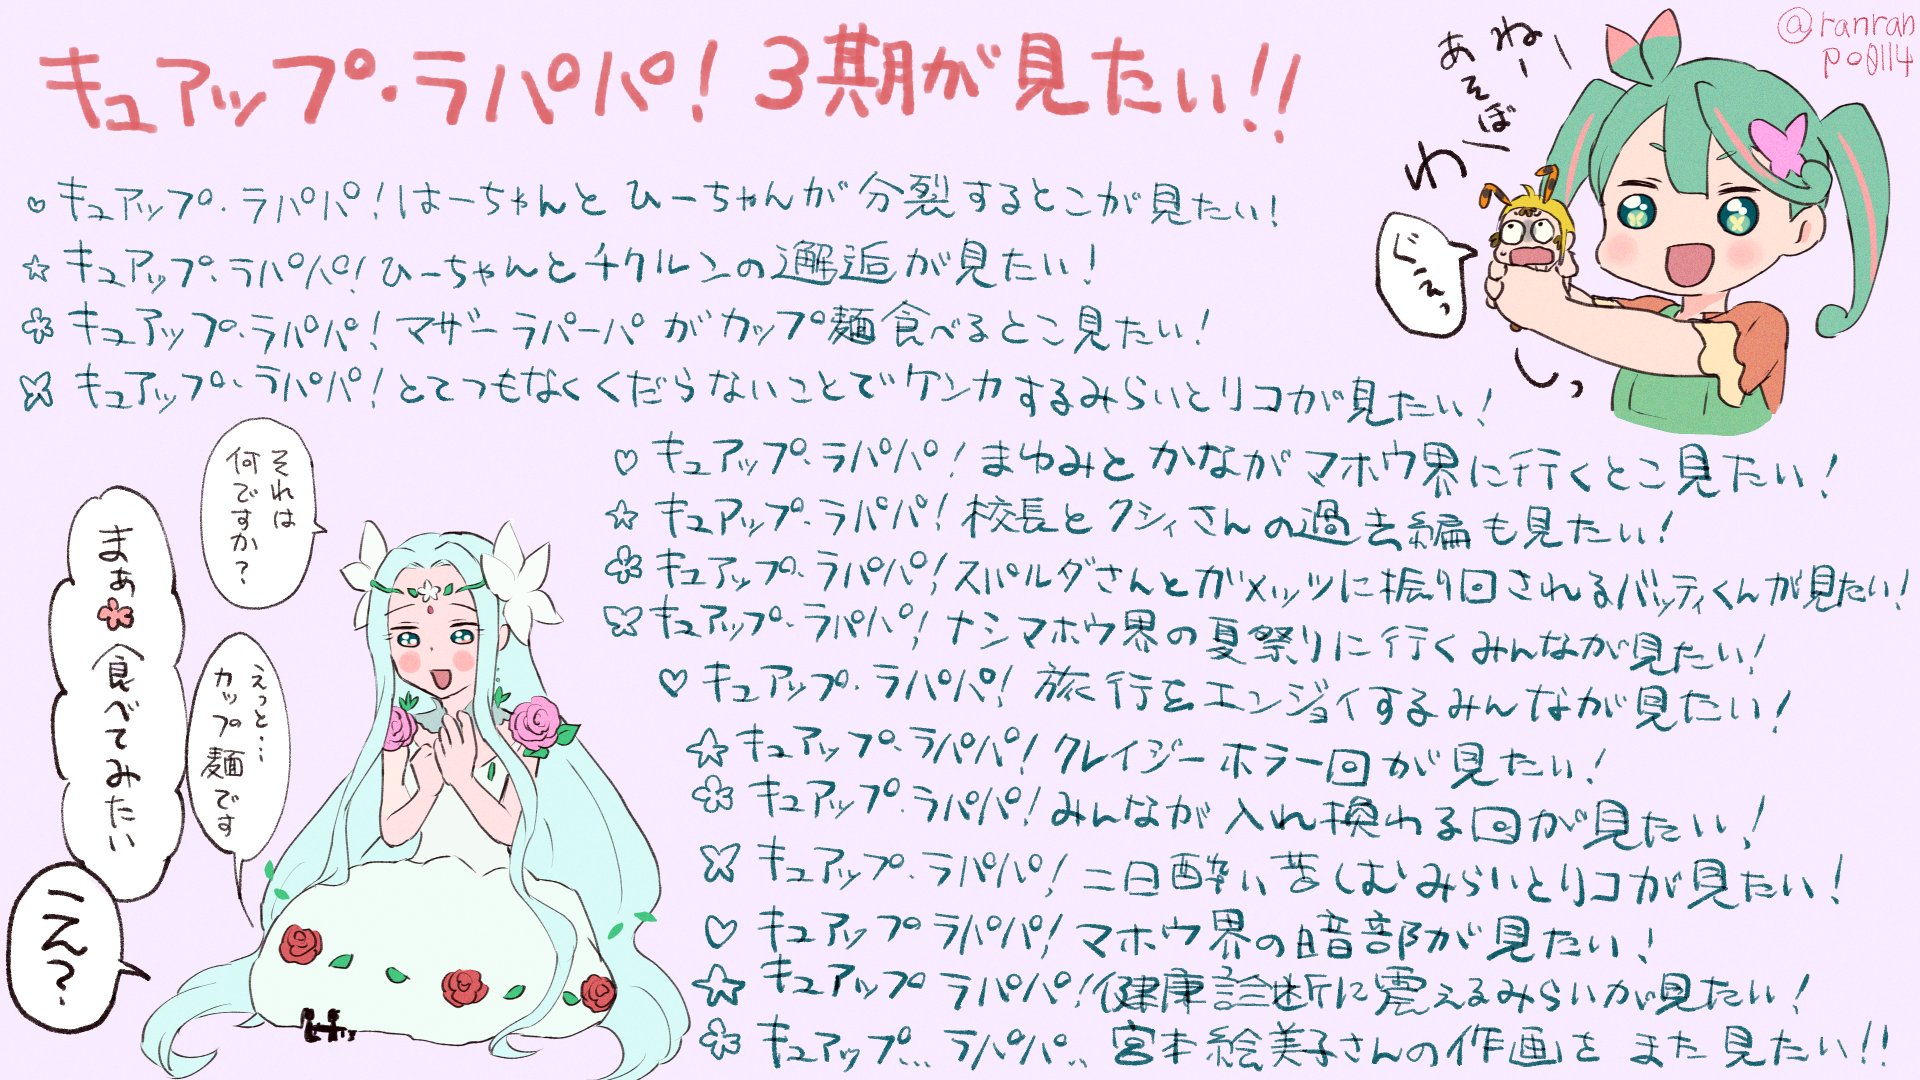 キュアップ・ラパパ！3期が見たい！！
@ranran
po0114
ねー
あそぼー
わ
じぇっ
しっ
キュアップ・ラパパ！はーちゃんとひーちゃんが分裂するとこが見たい！
キュアップ・ラパパ！ひーちゃんとチクルンの邂逅が見たい！
キュアップ・ラパパ！マザーラパーパがカップ麺食べるとこ見たい！
キュアップ・ラパパ！とてつもなくくだらないことでケンカするみらいとリコが見たい！
キュアップ・ラパパ！まゆみとかながマホウ界に行くとこ見たい！
キュアップ・ラパパ！校長とクシィさんの過去編も見たい！
キュアップ・ラパパ！スパルダさんとガメッツに振り回されるバッティくんが見たい！
キュアップ・ラパパ！ナシマホウ界の夏祭りに行くみんなが見たい！
キュアップ・ラパパ！旅行をエンジョイするみんなが見たい！
キュアップ・ラパパ！クレイジーホラー回が見たい！
キュアップ・ラパパ！みんなが入れ換わる回が見たい！
キュアップ・ラパパ！二日酔い苦しむみらいとリコが見たい！
キュアップ ラパパ！マホウ界の暗部が見たい！
キュアップ ラパパ！健康診断に震えるみらいが見たい！
キュアップ… ラパパ‥ 宮本絵美子さんの作画を また見たい！！
それは
何ですか？
えっと…
カップ麺です
まぁ
食べてみたい
え？